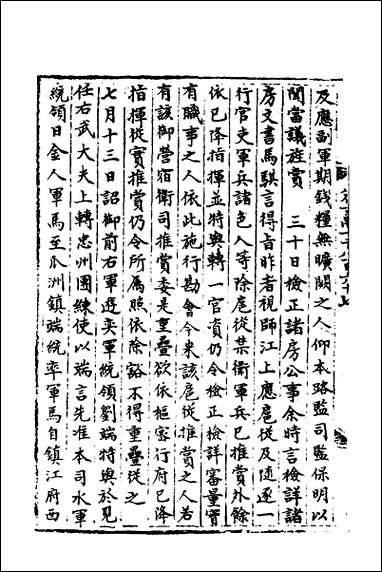 及應副軍期錢糧無曠闕之人仰本路監司監保明以
聞當議旌賞　三十日檢正諸房公事余時言檢詳諸
房文書馬騏言得旨昨者視師江上應扈從及隨逐一
行官吏軍兵諸色人等除扈從禁衛軍兵已推賞外餘
依已降指揮並特與轉一官資仍令檢正檢詳審量實
有職事之人依此施行勘會今来該扈從推賞之人若
有該御營宿衛司推賞委是重疊欲依樞密行府已降
指揮從實推賞仍令所属照依除豁不得重疊從之
七月十三日詔御前右軍選奕軍統領劉端特與於見
任右武大夫上轉忠州團練使以端言先准本司水軍
統領日金人軍馬至瓜洲鎮端統率軍馬自鎮江府西